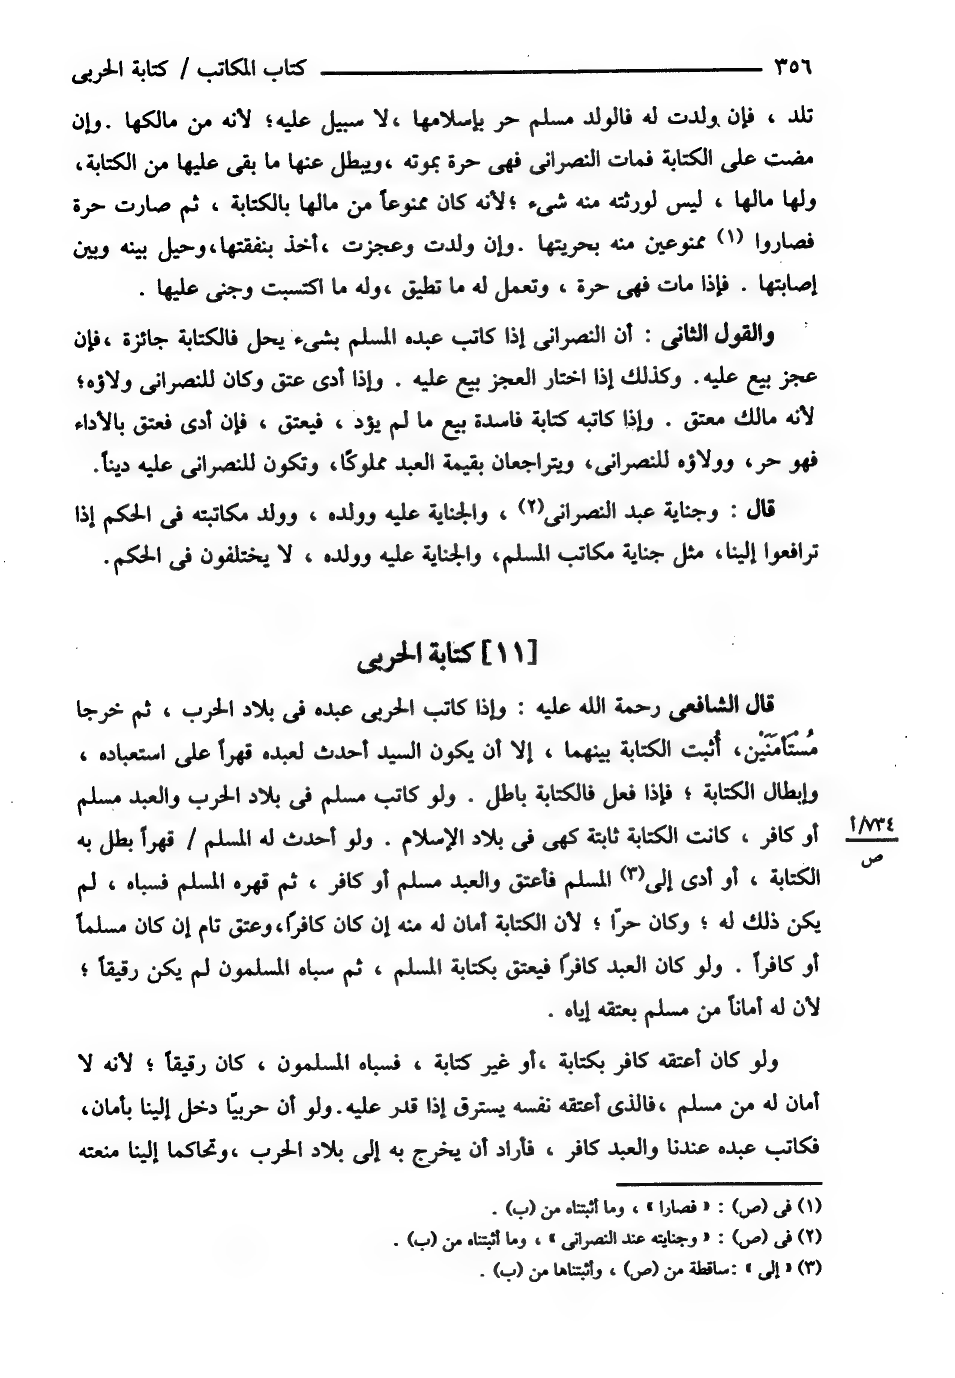 ٣٥٦ كتاب المكاتب / كتابة الحربى
تلد ، فإن ولدت له فالولد مسلم حر بإسلامها ،لا سبيل عليه؛ لأنه من مالكها .وإن
مضت على الكتابة فمات النصرانى فهى حرة بموته ،ويبطل عنها ما بقى عليها من الكتابة،
ولها مالها ، ليس لورثته منه شىء ؛لأنه كان ممنوعاً من مالها بالكتابة ، ثم صارت حرة
فصاروا (١) ممنوعين منه بحريتها .وإن ولدت وعجزت ،أخذ بنفقتها،وحيل بينه وبين
إصابتها . فإذا مات فهى حرة ، وتعمل له ما تطيق ،وله ما اكتسبت وجنى عليها .
والقول الثانى : أن النصرانى إذا كاتب عبده المسلم بشىء يحل فالكتابة جائزة ،فإن
عجز بيع عليه. وكذلك إذا اختار العجز بيع عليه . وإذا أدى عتق وكان للنصرانى ولاؤه؛
لأنه مالك معتق . وإذا كاتبه كتابة فاسدة بيع ما لم يؤد ، فيعتق ، فإن أدى فعتق بالأداء
فهو حر، وولاؤه للنصرانى، ويتراجعان بقيمة العبد مملوكًا، وتكون للنصرانى عليه ديناً.
قال : وجناية عبد النصرانى(٢) ، والجناية عليه وولده ، وولد مكاتبته فى الحكم إذا
ترافعوا إلينا، مثل جناية مكاتب المسلم، والجناية عليه وولده ، لا يختلفون فى الحكم.
[١١] كتابة الحربى
قال الشافعى رحمة الله عليه : وإذا كاتب الحربى عبده فى بلاد الحرب ، ثم خرجا
مُسْتَأْمَنَيْن، أُثبت الكتابة بينهما ، إلا أن يكون السيد أحدث لعبده قهراً على استعباده ،
وإبطال الكتابة ؛ فإذا فعل فالكتابة باطل . ولو كاتب مسلم فى بلاد الحرب والعبد مسلم
أو كافر ، كانت الكتابة ثابتة كهى فى بلاد الإسلام . ولو أحدث له المسلم / قهراً بطل به
٧٣٤/أ
ص
الكتابة ، أو أدى إلى(٣) المسلم فأعتق والعبد مسلم أو كافر ، ثم قهره المسلم فسباه ، لم
يكن ذلك له ؛ وكان حرًا ؛ لأن الكتابة أمان له منه إن كان كافرًا،وعتق تام إن كان مسلماً
أو كافراً . ولو كان العبد كافرًا فيعتق بكتابة المسلم ، ثم سباه المسلمون لم يكن رقيقاً ؛
لأن له أماناً من مسلم بعتقه إياه .
ولو كان أعتقه كافر بكتابة ،أو غير كتابة ، فسباه المسلمون ، كان رقيقاً ؛ لأنه لا
أمان له من مسلم ،فالذى أعتقه نفسه يسترق إذا قدر عليه.ولو أن حربيًا دخل إلينا بأمان،
فكاتب عبده عندنا والعبد كافر ، فأراد أن يخرج به إلى بلاد الحرب ،وتحاكما إلينا منعته
(١) فى (ص) : « فصارا » ، وما أثبتناه من (ب) .
(٢) فى (ص) : « وجنايته عند النصرانى » ، وما أثبتناه من (ب) .
(٣) « إلى » :ساقطة من (ص) ، وأثبتناها من (ب) .